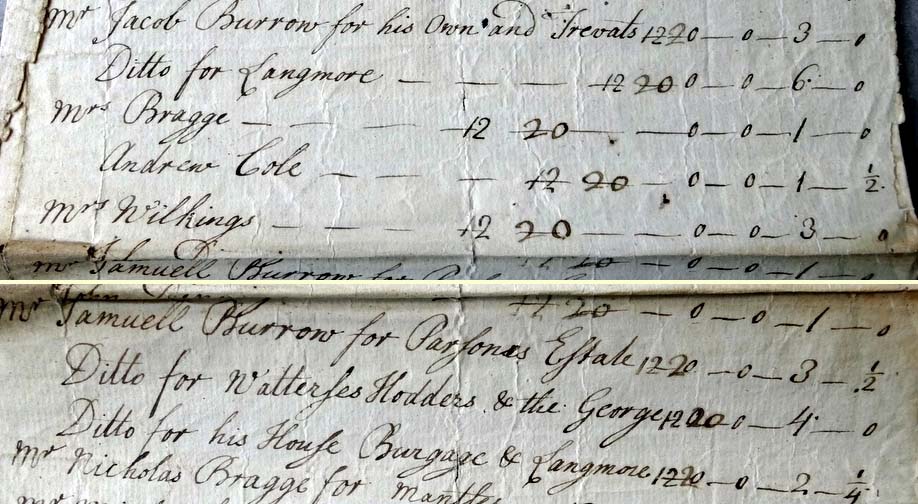 Mr Jacob Burrow for his Own and Trevats 12 20 — 0 — 3 — 0
Ditto for Langmore — — — 12 20 0 — 0 — 6 — 0
Mrs Bragge — — — — 12 20 — — 0 — 0 — 1 — 0
Andrew Cole — — — 12 20 — 0 — 0 — 1 — 1/2
Mrs Wilkings — — — 12 20 — — 0 — 0 — 3 — 0
Mr Samuell Burrow for 12 20 — 0 — 0 — 1 — 0
John 12 20 — 0 — 0 — 1 — 0
Mr Samuell Burrow for Parsones Estate 12 20 — 0 — 3 — 1/2
Ditto for Watterses Hodders & the George 12 20 0 — 4 — 0
Ditto for his House Burgage & Langmore 12 20 — 0 — 2 — 1/4
Mr Nicholas Bragge for